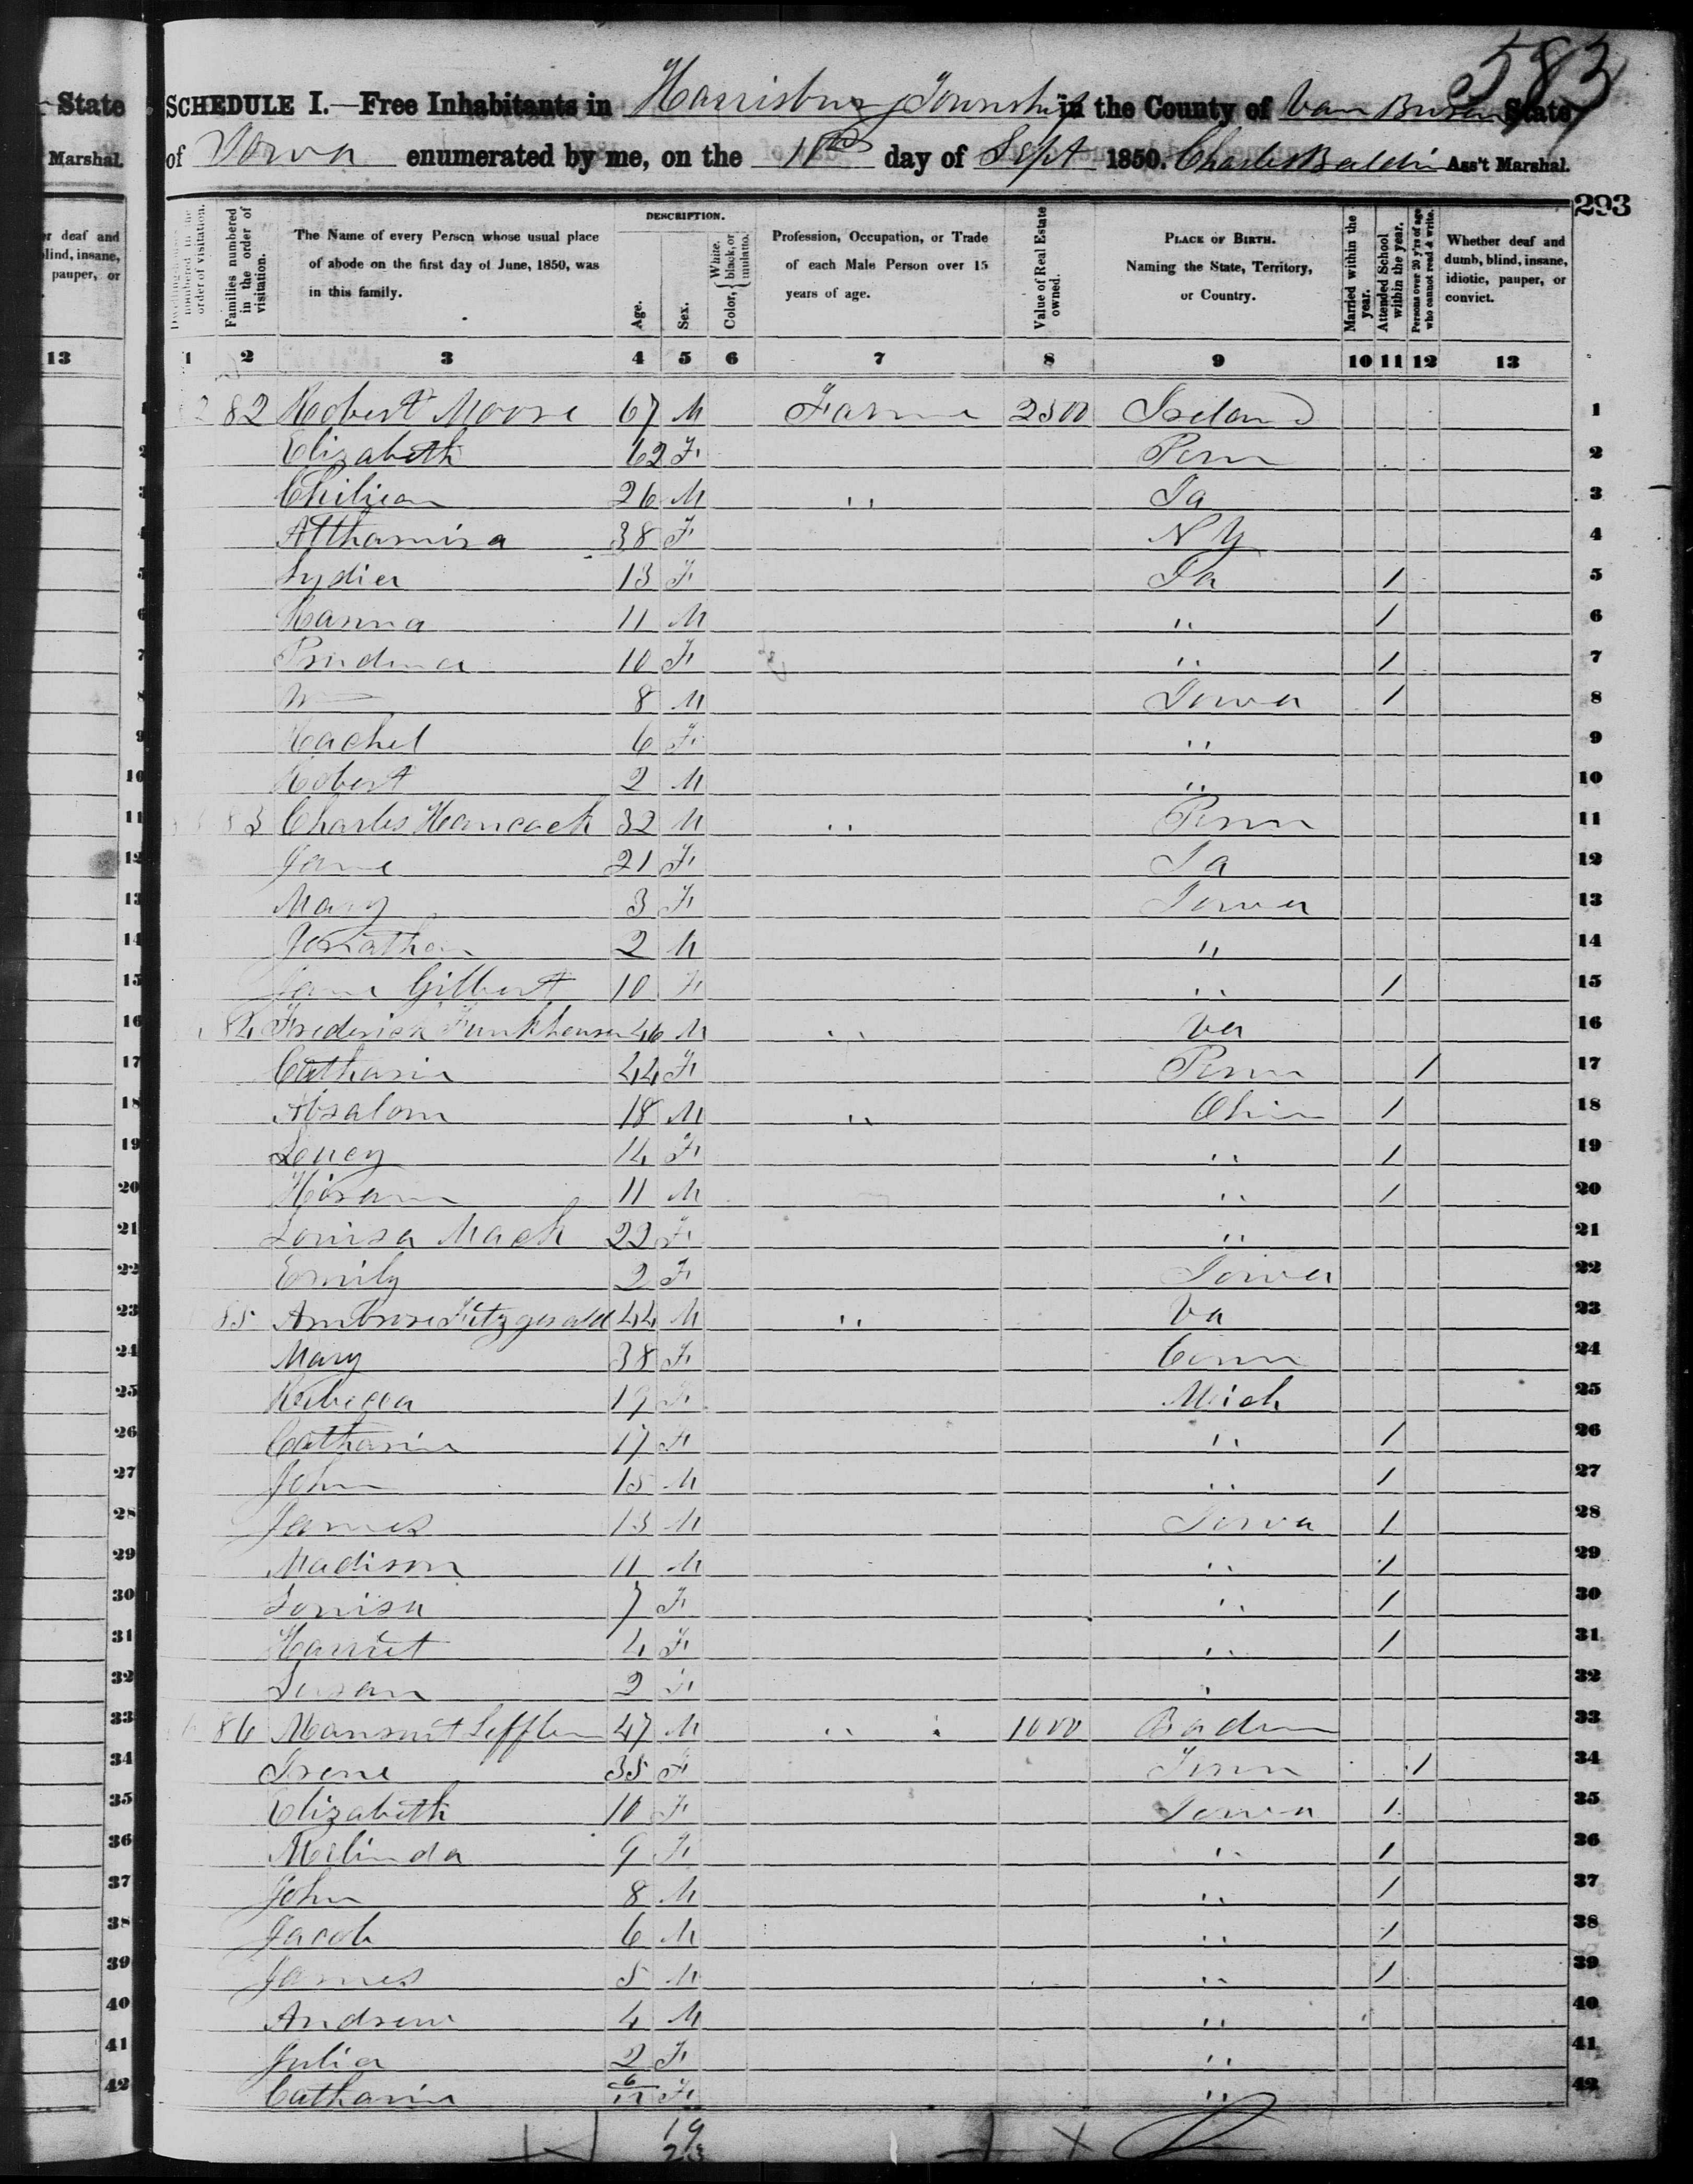 583
State
Marshal.
SCHEDULE I.—Free Inhabitants in Harrisburg Township in the County of Van Buren State
of Iowa enumerated by me, on the day of Sept 1850. Charles Baldwin Ass't Marshal.
293
or deaf and
blind, insane,
pauper, or
13
Dwelling-houses numbered in the order of visitation.
Families numbered in the order of visitation.
The Name of every Person whose usual place of abode on the first day of June, 1850, was in this family.
DESCRIPTION.
Age.
Sex.
Color, { White, black, or mulatto.
Profession, Occupation, or Trade of each Male Person over 15 years of age.
Value of Real Estate owned.
PLACE OF BIRTH. Naming the State, Territory, or Country.
Married within the year.
Attended School within the year.
Persons over 20 y'rs of age who cannot read & write.
Whether deaf and dumb, blind, insane, idiotic, pauper, or convict.
1 2 3 4 5 6 7 8 9 10 11 12 13
1 2 82 Robert Moore 67 M Farmer 2500 Ireland 1
2 Elizabeth 62 F Penn 2
3 26 M " Ia 3
4 38 F N Y 4
5 Lydia 13 F Ia 1 5
6 Hanna 11 M " 1 6
7 Prudence 10 F " 1 7
8 Wm 8 M Iowa 1 8
9 Rachel 6 F " 9
10 Robert 2 M " 10
11 83 Charles Hancock 32 M " Penn 11
12 Jane 21 F Ia 12
13 Mary 3 F Iowa 13
14 Jonathan 2 M " 14
15 Jane Gilbert 10 F " 1 15
16 84 Frederick Funkhouser 46 M " Va 16
17 Catharine 44 F Penn 1 17
18 Absalom 18 M " Ohio 1 18
19 Loucy 14 F " 1 19
20 Hiram 11 M " 1 20
21 Louisa Mack 22 F " 21
22 Emily 2 F Iowa 22
23 85 Ambrose Fitzgerald 44 M " Va 23
24 Mary 38 F Conn 24
25 Rebecca 19 F Mich 25
26 Catharine 17 F " 1 26
27 John 15 M " 1 27
28 James 13 M Iowa 1 28
29 Madison 11 M " 1 29
30 Louisa 7 F " 1 30
31 Harriet 4 F " 1 31
32 Susan 2 F " 32
33 86 Mansuit Leffler 47 M " 1000 Baden 33
34 Irene 35 F Tenn 1 34
35 Elizabeth 10 F Iowa 1 35
36 Melinda 9 F " 1 36
37 John 8 M " 1 37
38 Jacob 6 M " 1 38
39 James 5 M " 1 39
40 Andrew 4 M " 40
41 Julia 2 F " 41
42 Catharine 6/12 F " 42
19
23